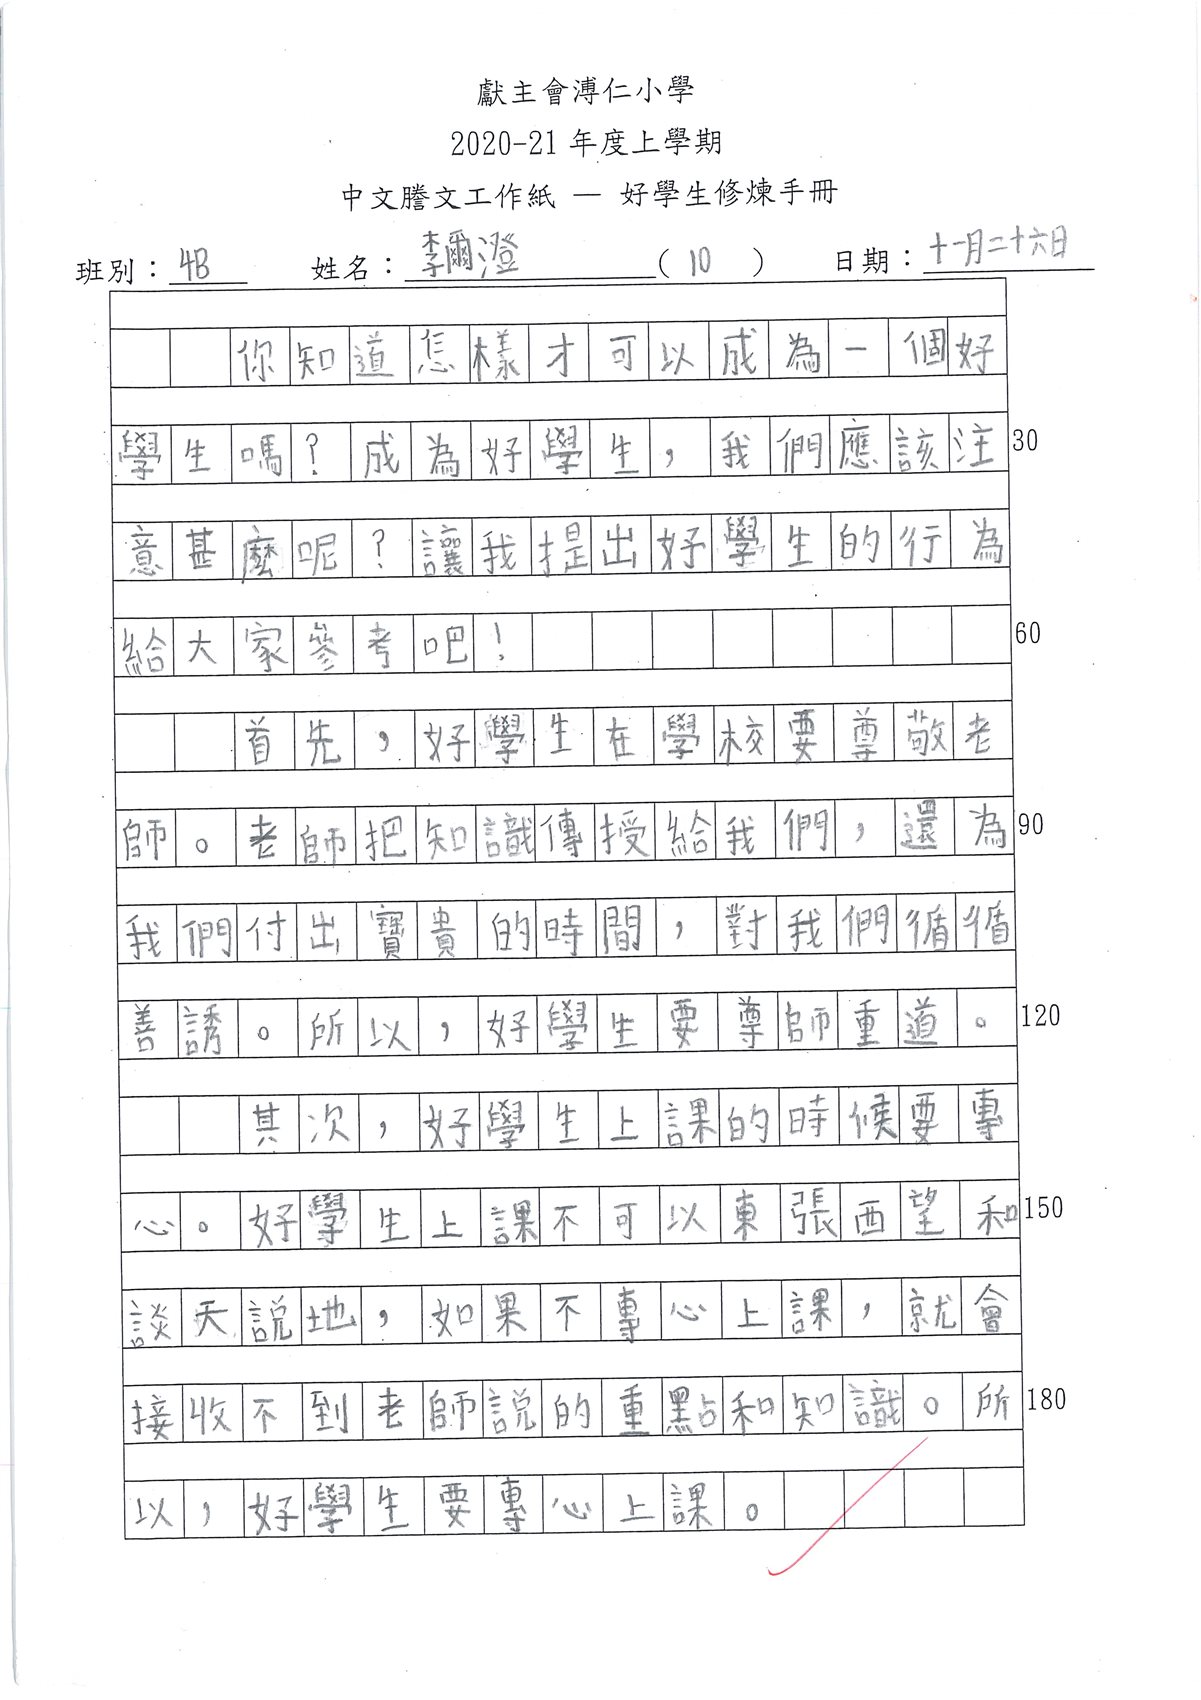 獻主會溥仁小學
2020-21 年度上學期
中文謄文工作紙 — 好學生修煉手冊
班別：4B 姓名：李爾澄(10) 日期：十一月二十六日
你知道怎樣才可以成為一個好
學生嗎？成為好學生，我們應該注 30
意甚麼呢？讓我提出好學生的行為
給大家參考吧！ 60
首先，好學生在學校要尊敬老
師。老師把知識傳授給我們，還為 90
我們付出寶貴的時間，對我們循循
善誘。所以，好學生要尊師重道。 120
其次，好學生上課的時候要專
心。好學生上課不可以東張西望和 150
談天說地，如果不專心上課，就會
接收不到老師說的重點和知識。所 180
以，好學生要專心上課。